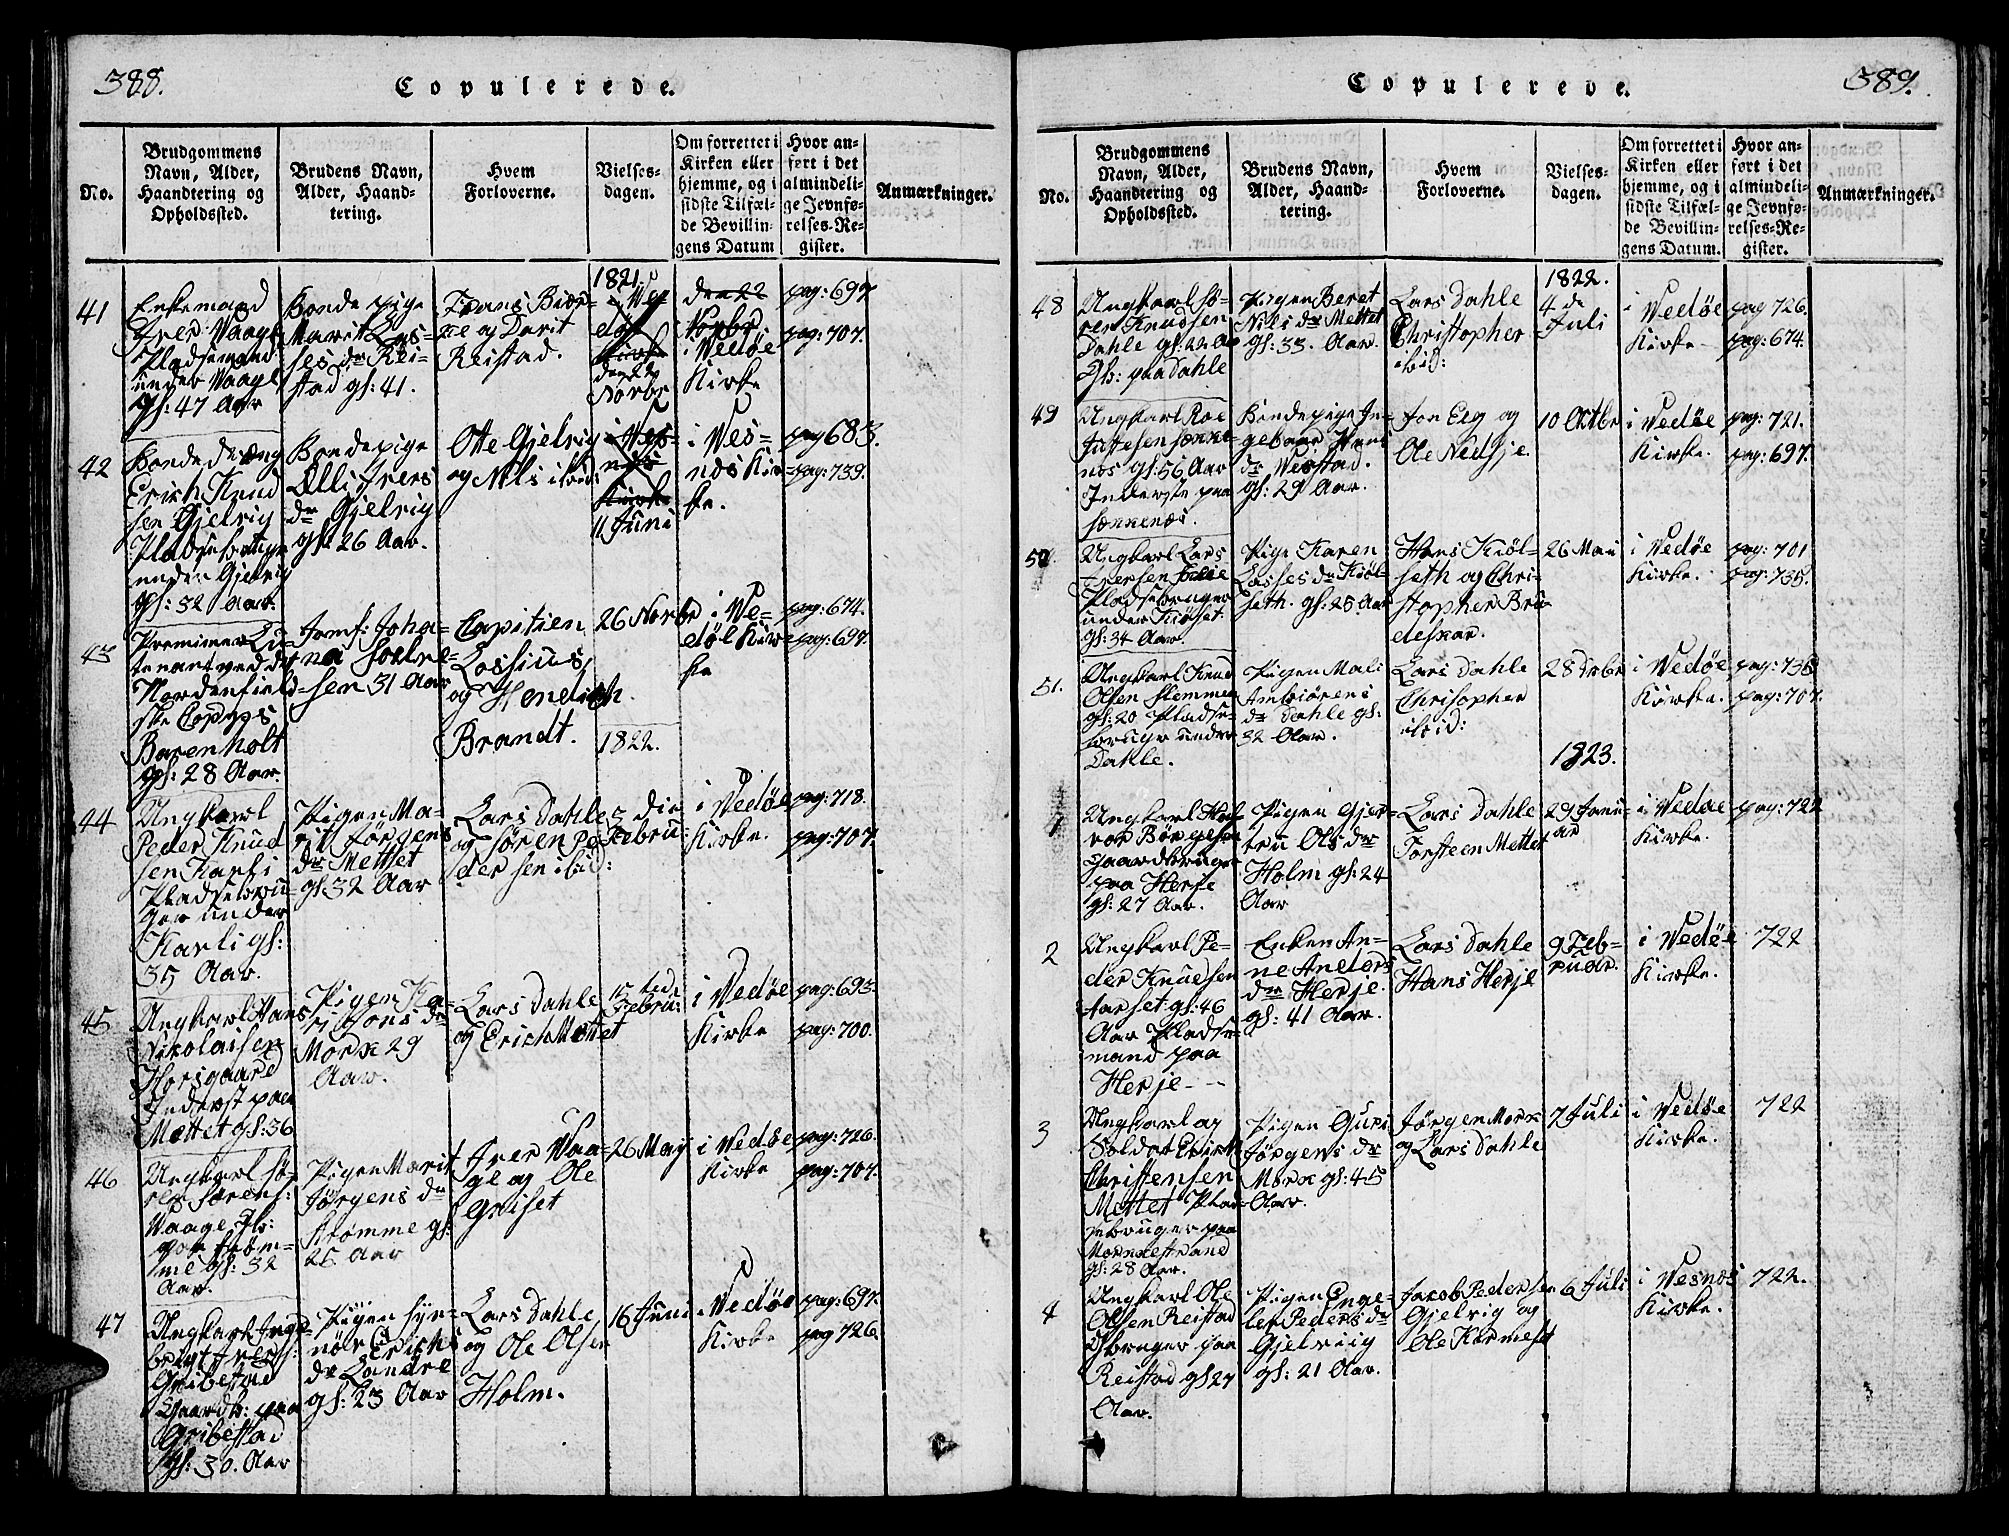 388.
Copulerede.
No.
Brudgommens
Navn, Alder,
Haandtering og
Opholdssted.
Brudens Navn,
Alder, Haand-
tering.
Hvem
Forloverne.
Vielses-
dagen.
Om forrettet i
Kirken eller
hjemme, og i
sidste Tilfæl-
de Bevillin-
gens Datum
Hvor an-
ført i det
almindeli-
ge Jevnfø-
relses-Re-
gister.
Anmærkninger.
41
Enkemand
Iver Vaage
Pladsemand
under Vaage
gl: 47 Aar
Bonde pige
Marit Las-
ses dr Rei-
stad gl: 41.
Frans Biør-
ne og Dorit
Reistad.
1821.
den 22
Norbr
i Vedøe
Kirke
pag: 697
pag: 707.
42
Bonde dreng
Erich Knud
sen Gjelvig
Pladsebruger
under Gjelvig
gl: 32 Aar.
Bondepige
Elli Ivers
dr Gjelvig
gl: 26 Aar.
Otte Gjelvig
og Nils ibid:
11 Juni
i Ves-
nes Kir-
ke.
pag 683.
pag: 739.
43
Premier Lü-
tenant ved det
Nordenfield-
ske
Barenholt
gl: 28 Aar.
Jomf: Joha-
na Soelre-
sen 31 Aar
Capitien
Lossius
og Hendrich
Brandt.
26 Norbr
i Ve-
døe Kir-
ke
pag: 674.
pag: 697.
1822.
44
Ungkarl
Peder Knud
sen Karli
Pladsebru-
ger under
Karli gl:
35 Aar.
Pigen Ma-
rit Jørgens
dr Mettet
gl: 32 Aar
Lars Dahle
og Søren Pe-
dersen ibid:
3 die
Febru:
i Vedøe
Kirke.
pag: 718.
pag: 707.
45
Ungkarl Hans
Nikolaisen
Horsgaard
Inderst paa
Mettet gl: 36
Pigen Ka-
ri Jons dr
Mork 29
Aar.
Lars Dahle
og Erich Mettet
15 ted.
Febru:
i Vedøe
Kirke
pag: 693.
pag: 700.
46
Ungkarl Sø-
ren Sørens:
Vaage
paa Strøm-
me gl: 32
Aar.
Pigen Marit
Jørgens dr
Strømme gl:
25 Aar
Iver Vaa-
ge og Ole
Griset
26 May
i Vedøe
Kirke
pag: 726.
pag: 707.
47
Ungkarl Inge-
brigt Ivers:
Gribestad
Gaardb: paa
Gribestad
gl: 30. Aar
Pigen Syn-
nøv Erichs
dr Landre
gl: 23 Aar
Lars Dahle
og Ole Olsen
Holm.
16 Juni
i Vedøe
Kirke
pag: 697.
pag 726.
389.
Copulerede.
No.
Brudgommens
Navn, Alder,
Haandtering og
Opholdssted.
Brudens Navn,
Alder, Haand-
tering.
Hvem
Forloverne.
Vielses-
dagen.
Om forrettet i
Kirken eller
hjemme, og i
sidste Tilfæl-
de Bevillin-
gens Datum.
Hvor an-
ført i det
almindeli-
ge Jevnfø-
relses-Re-
gister.
Anmærkninger.
1822.
48
Ungkarl Sø-
ren Knudsen
Dahle gl: 22 Aar
paa Dahle
Pigen Beret
Nils dr Mettet
gl: 33. Aar.
Lars Dahle
Christopher
ibid:
4 de
Juli
i Vedøe
Kirke
pag 726.
pag: 674.
49
Ungkarl Roe
Justesen Sække-
næs gl: 56 Aar
Inderste paa
Sækkenæs.
Bondepige In-
gebaar Hans
dr Vestad.
gl: 29 Aar.
Jon Eeg og
Ole Nedsje
10 Oktbr
i Vedøe
Kirke.
pag: 721.
pag: 697.
50
Ungkarl Lars
Iversen
Pladsebruger
under Kiølset
gl: 34 Aar.
Pige Karen
Lasses dr Kiøl-
seth. gl: 25 Aar
Hans Kiøl-
seth og Chri-
stopher Bru-
deskar.
26 Mai
i Vedøe
Kirke.
pag: 701
pag: 735.
51.
Ungkarl Knud
Olsen Slemmen
gl: 20 Pladse-
bruger under
Dahle.
Pigen Mali
Ambiørens
dr Dahle gl:
32 Aar.
Lars Dahle
Chrisopher
ibid:
28 Dcbr
i Vedøe
Kirke.
pag: 736
pag: 707.
1823.
1
Ungkarl Hal-
vor Børgesen
Gaardbruger
paa Herje
gl: 27 Aar.
Pigen Gjer-
tru Ols dr
Holm gl: 24
Aar
Lars Dahle
Torsteen Mettet
29 Janu
ar
i Vedøe
Kirke.
pag: 722
2
Ungkarl Pe-
der Knudsen
Aarset gl: 46
Aar Pladse-
mand paa
Herje
Enken An-
ne Anders
dr Herje.
gl: 41 Aar.
Lars Dahle
Hans Herje
9 Feb-
ruar.
i Vedøe
Kirke.
722
3
Ungkarl og
Soldat Erich
Christensen
Mettet Plad-
sebruger paa
Morkestrand
gl: 28 Aar.
Pigen Guri
Jørgens dr
Mork gl: 45
Aar.
Jørgen Mork
og Lars Dahle
7 Juli
i Vedøe
Kirke.
722
4
Ungkarl Ole
Olsen Reistad
Gbruger paa
Reistad gl 27
Aar.
Pigen Inge-
lev Peders dr
Gjelviig
gl: 21 Aar.
Jacob Pedersen
Gjelvig og
Ole Kormeset
6 Juli
i Vesnæs
Kirke.
722.